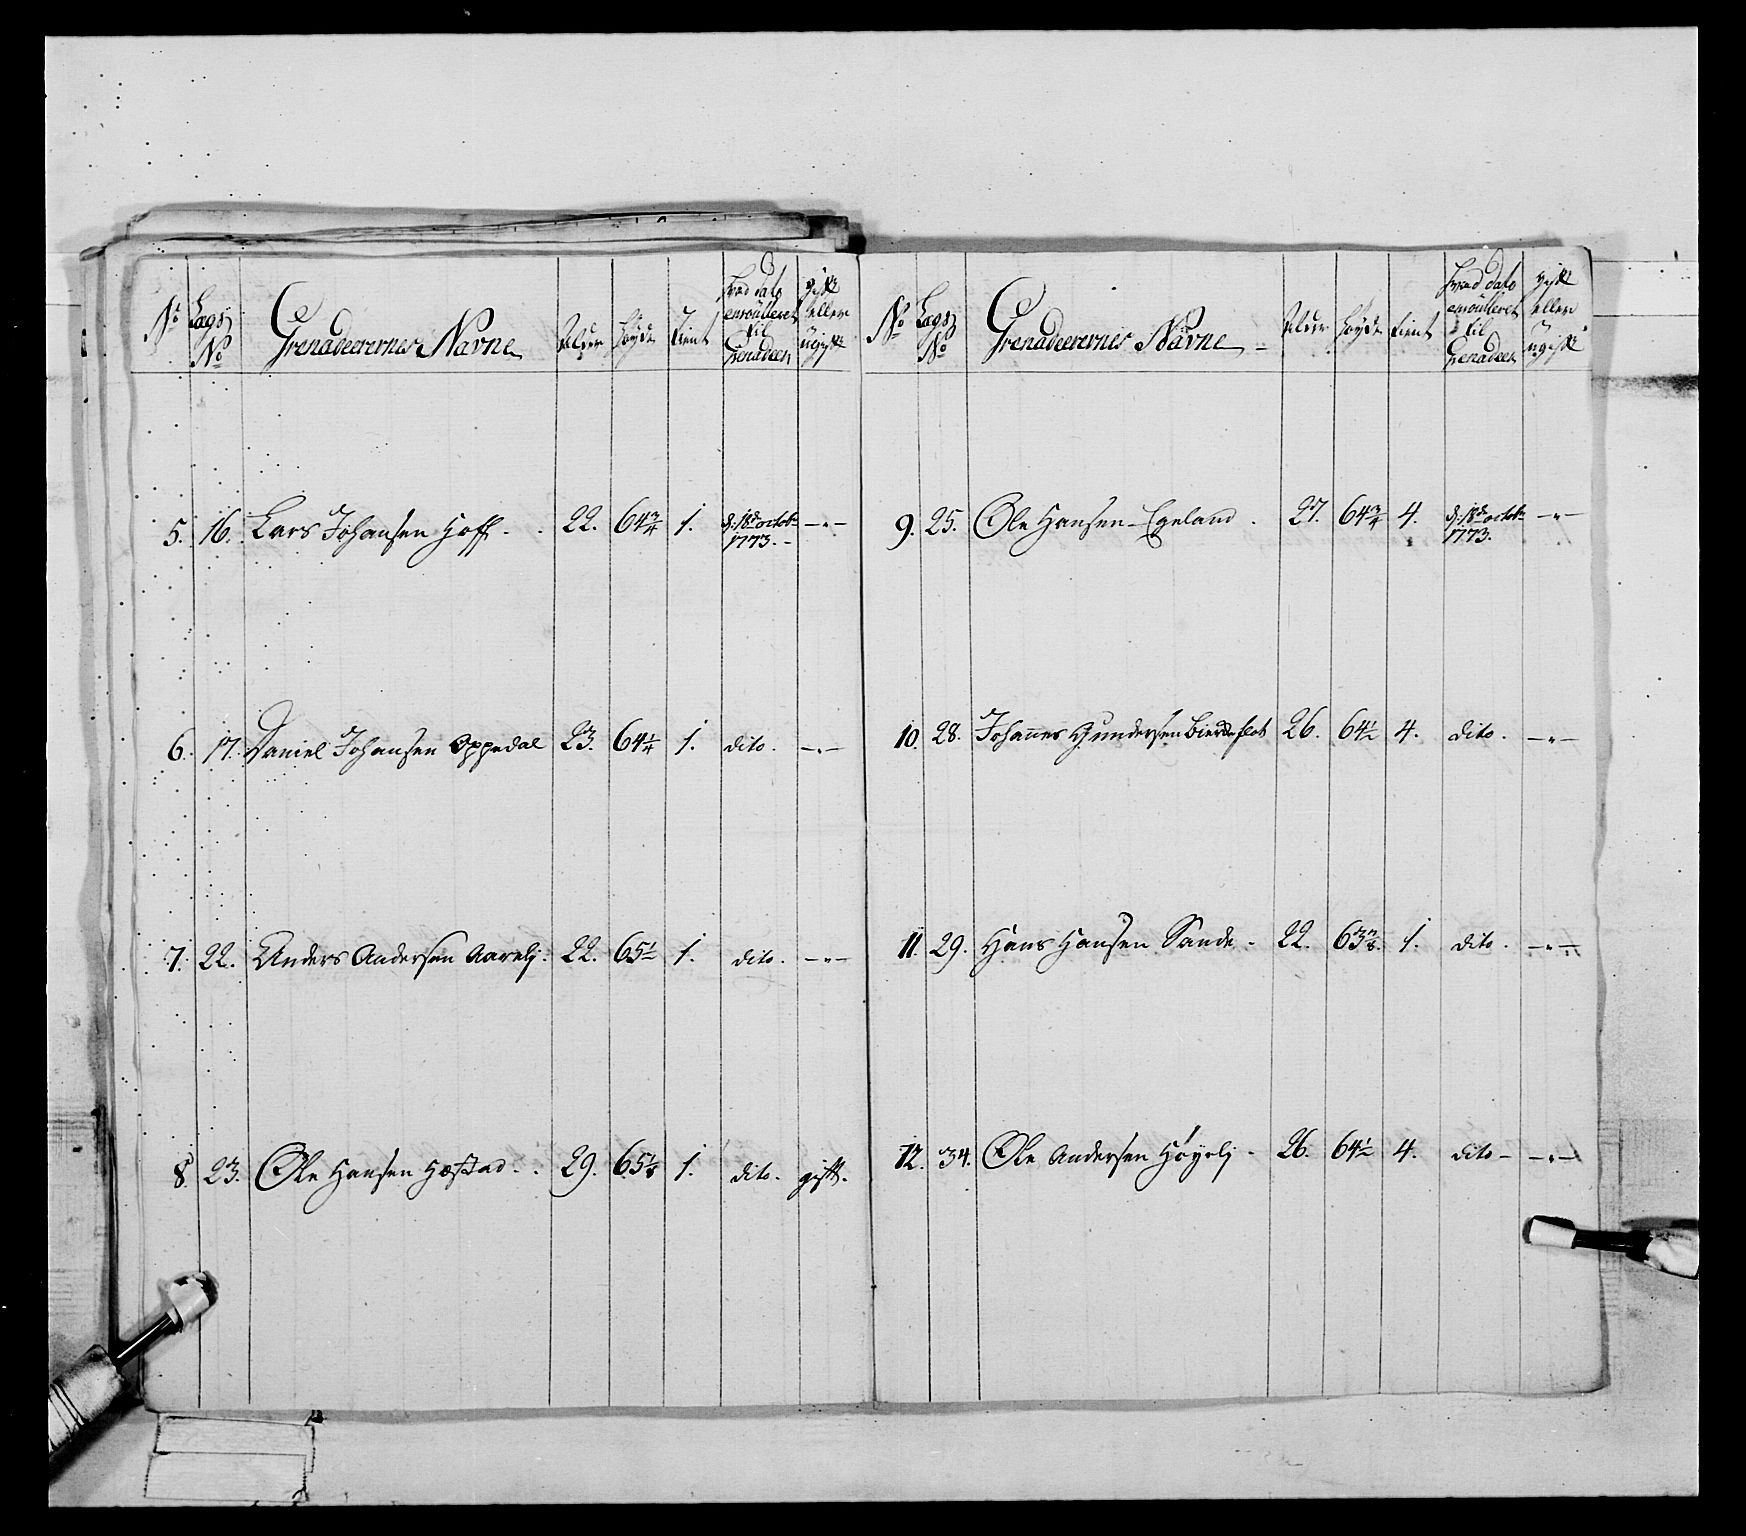 No Lægs No Grenadeerernes Navne Alder Høyde Tient hvad dato enroulleret til Grenadeer gift eller ugift
5. 16. Lars Johansen Hoff. 22. 64 3/4 1. d: 18de octobr 1773. - - " -
6. 17. Daniel Johansen Oppedal 23. 64 1/4 1. dito. - " -
7. 22. Anders Andersen 22. 65 1/2 1. dito. - " -
8. 23. Ole Hansen Hæstad. 29. 65 1/8 1. dito. gift.
No Lægs No Grenadeerernes Navne Alder Høyde tient hvad dato enroulleret til Grenadeer gift eller ugift
9. 25. Ole Hansen Egeland. 27. 64 3/4 4. d: 18de octobr 1773. - " -
10. 28. Johannes Gundersen 26. 64 1/2 4. dito. - " -
11. 29. Hans Hansen Sande. 22. 63 7/8 1. dito. - " -
12. 34. Ole Andersen 26. 64 1/2 4. dito - - " -